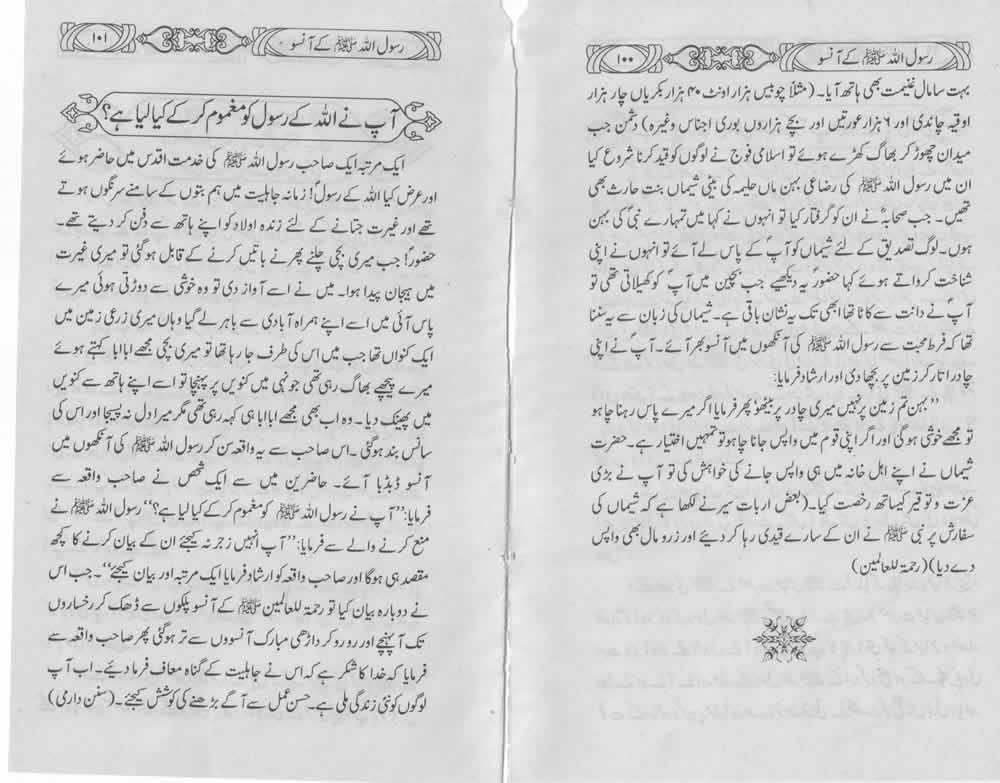 رسول اللہ ﷺ کے آنسو
۱۰۰
بہت سا مال غنیمت بھی ہاتھ آیا۔ (مثلاً چوبیس ہزار اونٹ ۴۰ ہزار بکریاں چار ہزار
اوقیہ چاندی اور ۶ ہزار عورتیں اور بچے ہزاروں بوری اجناس وغیرہ) دشمن جب
میدان چھوڑ کر بھاگ کھڑے ہوئے تو اسلامی فوج نے لوگوں کو قید کرنا شروع کیا
ان میں رسول اللہ ﷺ کی رضاعی بہن ماں حلیمہ کی بیٹی شیماں بنت حارث بھی
تھیں۔ جب صحابہؓ نے ان کو گرفتار کیا تو انہوں نے کہا میں تمہارے نبیؐ کی بہن
ہوں۔ لوگ تصدیق کے لئے شیماں کو آپؐ کے پاس لے آئے تو انہوں نے اپنی
شناخت کرواتے ہوئے کہا حضورؐ یہ دیکھیے جب بچپن میں آپؐ کو کھیلاتی تھی تو
آپؐ نے دانت سے کاٹا تھا ابھی تک یہ نشان باقی ہے۔ شیماں کی زبان سے یہ سننا
تھا کہ فرط محبت سے رسول اللہ ﷺ کی آنکھوں میں آنسو بھر آئے۔ آپؐ نے اپنی
چادر اتار کر زمین پر بچھا دی اور ارشاد فرمایا:
”بہن تم زمین پر نہیں میری چادر پر بیٹھو پھر فرمایا اگر میرے پاس رہنا چاہو
تو مجھے خوشی ہوگی اور اگر اپنی قوم میں واپس جانا چاہو تو تمہیں اختیار ہے۔ حضرت
شیماں نے اپنے اہل خانہ میں ہی واپس جانے کی خواہش کی تو آپ نے بڑی
عزت و توقیر کیساتھ رخصت کیا۔ (بعض اربات سیر نے لکھا ہے کہ شیماں کی
سفارش پر نبی ﷺ نے ان کے سارے قیدی رہا کر دیئے اور زر و مال بھی واپس
دے دیا) (رحمۃ للعالمین)
رسول اللہ ﷺ کے آنسو
۱۰۱
آپ نے اللہ کے رسول کو مغموم کر کے کیا لیا ہے؟
ایک مرتبہ ایک صاحب رسول اللہ ﷺ کی خدمت اقدس میں حاضر ہوئے
اور عرض کیا اللہ کے رسولؐ! زمانہ جاہلیت میں ہم بتوں کے سامنے سرنگوں ہوتے
تھے اور غیرت جتانے کے لئے زندہ اولاد کو اپنے ہاتھ سے دفن کر دیتے تھے۔
حضورؐ! جب میری بچی چلنے پھرنے باتیں کرنے کے قابل ہو گئی تو میری غیرت
میں ہیجان پیدا ہوا۔ میں نے اسے آواز دی تو وہ خوشی سے دوڑتی ہوئی میرے
پاس آئی میں اسے اپنے ہمراہ آبادی سے باہر لے گیا وہاں میری زرعی زمین میں
ایک کنواں تھا جب میں اس کی طرف جا رہا تھا تو میری بچی مجھے ابا ابا کہتے ہوئے
میرے پیچھے بھاگ رہی تھی جونہی میں کنویں پر پہنچا تو اسے اپنے ہاتھ سے کنویں
میں پھینک دیا۔ وہ اب بھی مجھے ابا ابا ہی کہہ رہی تھی مگر میرا دل نہ پسیجا اور اس کی
سانس بند ہو گئی۔ اس صاحب سے یہ واقعہ سن کر رسول اللہ ﷺ کی آنکھوں میں
آنسو ڈبڈبا آئے۔ حاضرین میں سے ایک شخص نے صاحب واقعہ سے
فرمایا: ”آپ نے رسول اللہ ﷺ کو مغموم کر کے کیا لیا ہے؟“ رسول اللہ ﷺ نے
منع کرنے والے سے فرمایا: ”آپ انہیں زجر نہ کیجئے ان کے بیان کرنے کا کچھ
مقصد ہی ہوگا اور صاحب واقعہ کو ارشاد فرمایا ایک مرتبہ اور بیان کیجئے“۔ جب اس
نے دوبارہ بیان کیا تو رحمۃ للعالمین ﷺ کے آنسو پلکوں سے ڈھلک کر رخساروں
تک آ پہنچے اور رو رو کر داڑھی مبارک آنسوؤں سے تر ہو گئی پھر صاحب واقعہ سے
فرمایا کہ خدا کا شکر ہے کہ اس نے جاہلیت کے گناہ معاف فرما دیئے۔ اب آپ
لوگوں کو نئی زندگی ملی ہے۔ حسن عمل سے آگے بڑھنے کی کوشش کیجئے۔ (سنن دارمی)